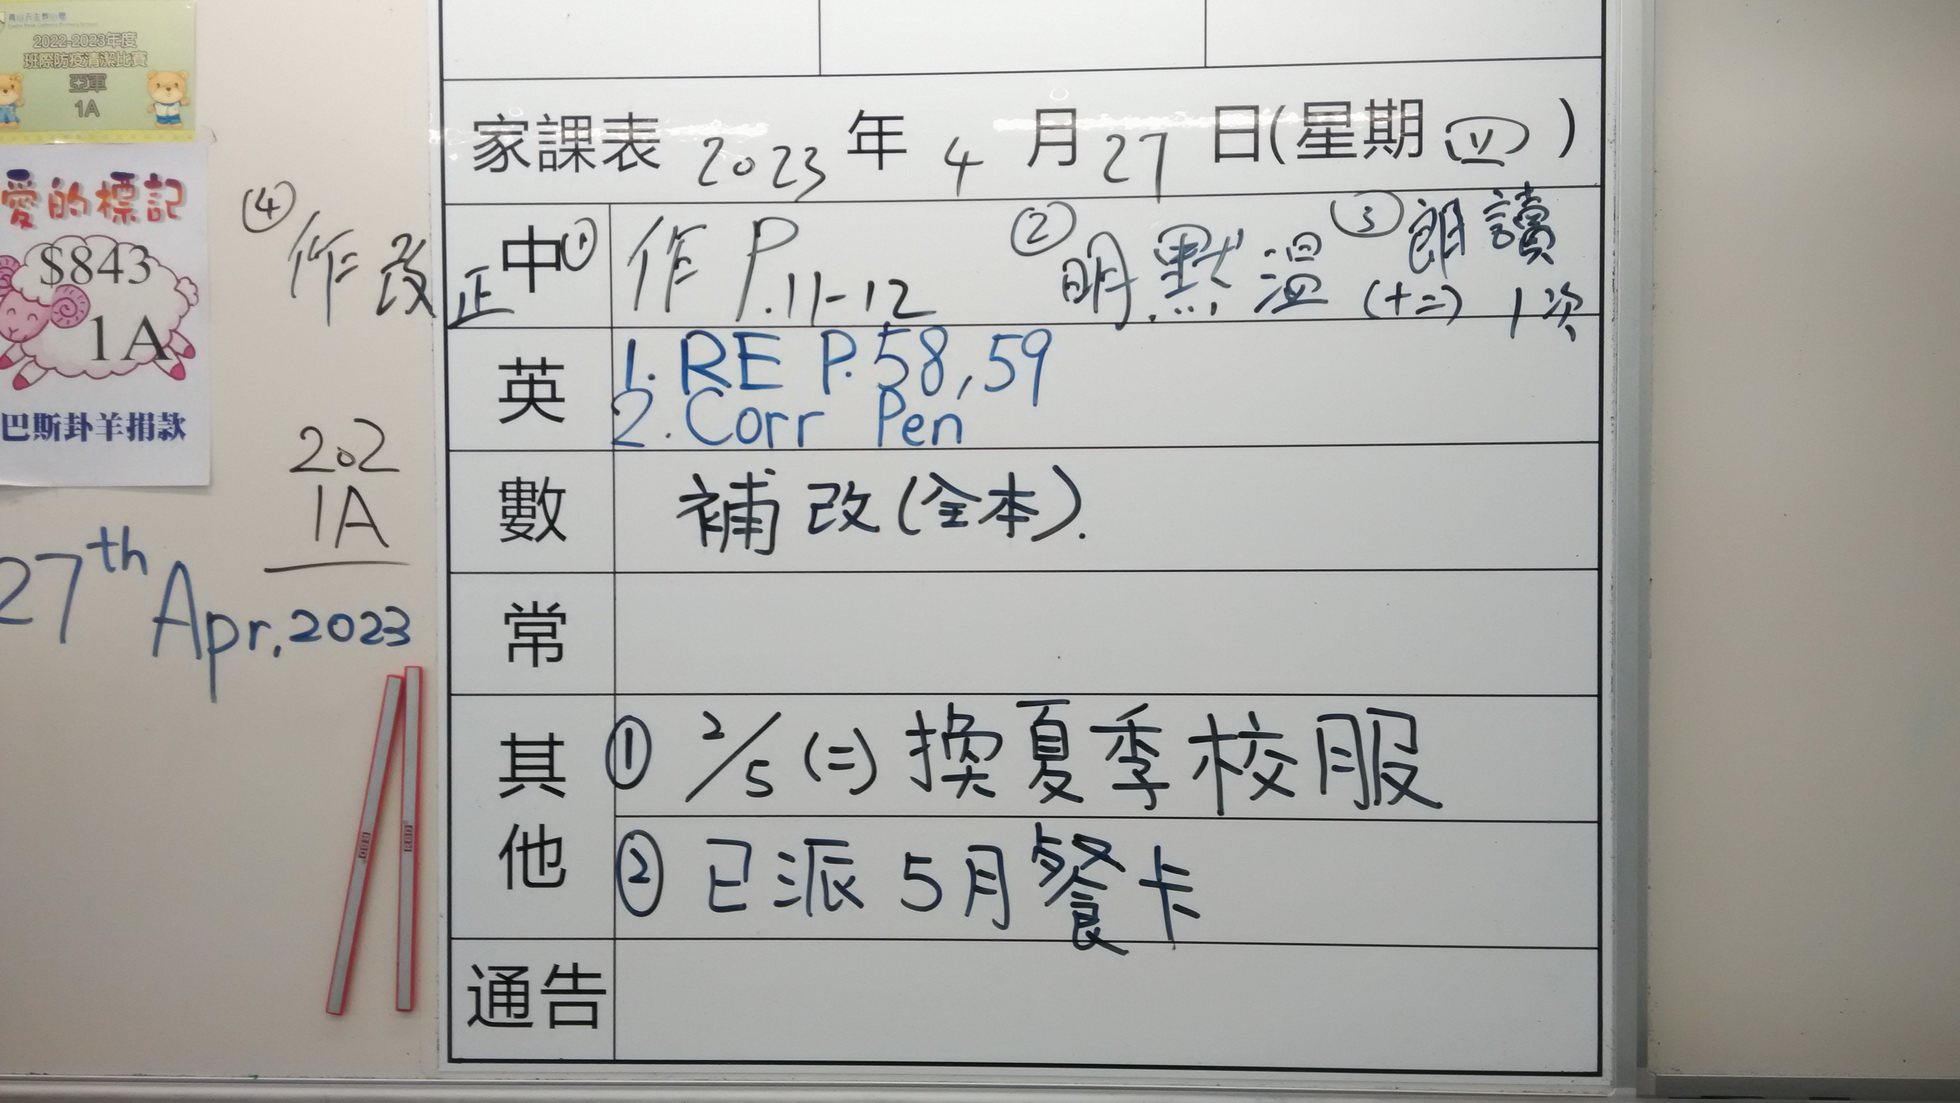 2022-2023年度
班際防疫清潔比賽
亞軍
1A
愛的標記
$843
1A
巴斯卦羊捐款
202
1A
27th Apr, 2023
家課表 2023 年 4 月 27 日(星期四)
中 ① 作 P.11-12 ② 明默溫 ③ 朗讀(十二) 1次
④ 作改正
英 1. RE P.58,59
2. Corr Pen
數 補改(全本).
常
其他 ① 2/5 (二) 換夏季校服
② 已派 5月餐卡
通告